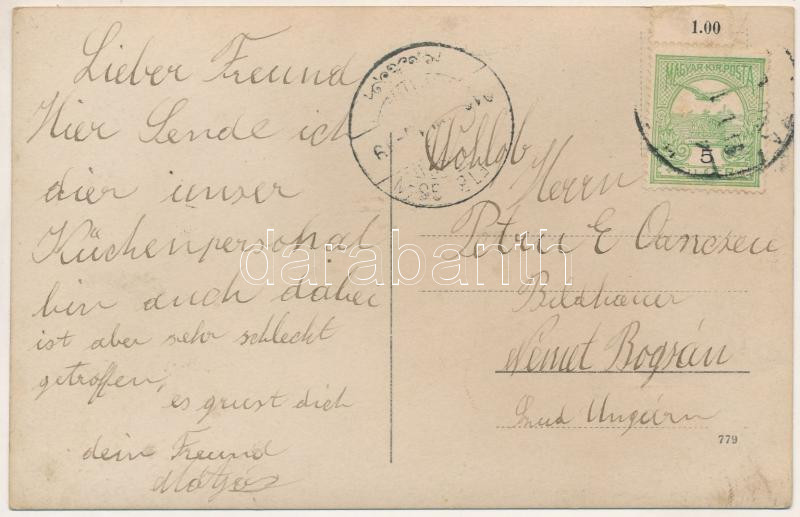 Lieber Freund
Hier Sende ich
dier unser
Küchenpersohal
bin auch dabei
ist aber sehr schleckt
getroffen,
es grust dich
dein Freund
1.00
MAGYAR·KIR·POSTA
5
Wohlgb
Herrn
Petru E Oanczeu
Bildhauer
Német Bogsán
Sud Ungarn
779
darabanth